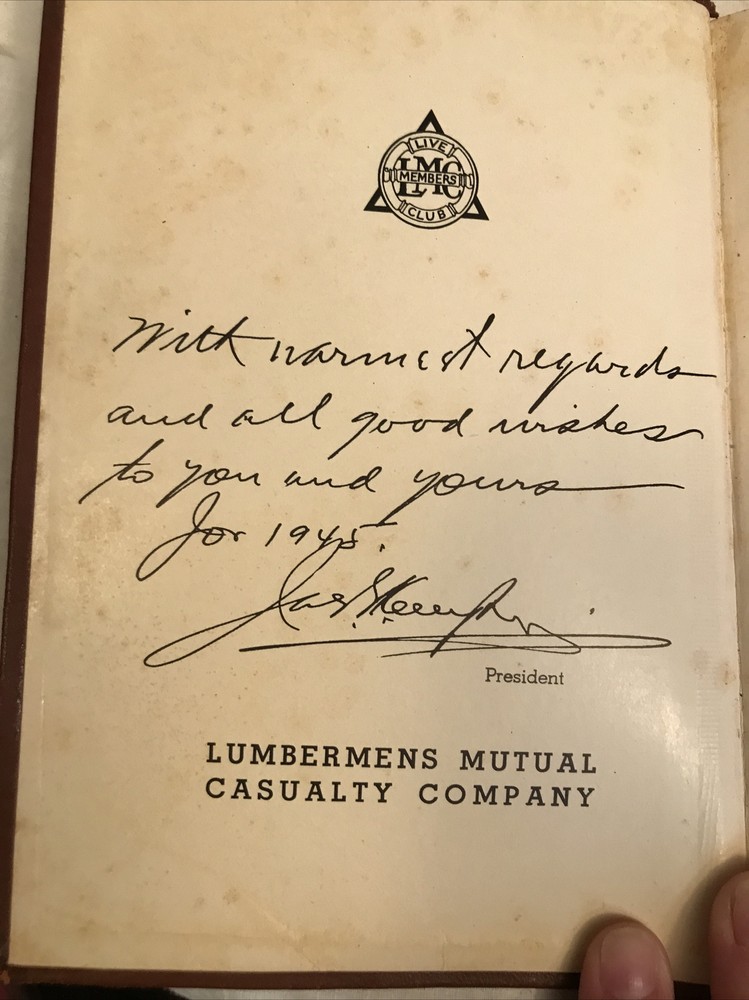 LIVE
LMC
MEMBERS
CLUB
With warmest regards
and all good wishes
to you and yours
for 1945.
Jas. S. Kemper
President
LUMBERMENS MUTUAL
CASUALTY COMPANY